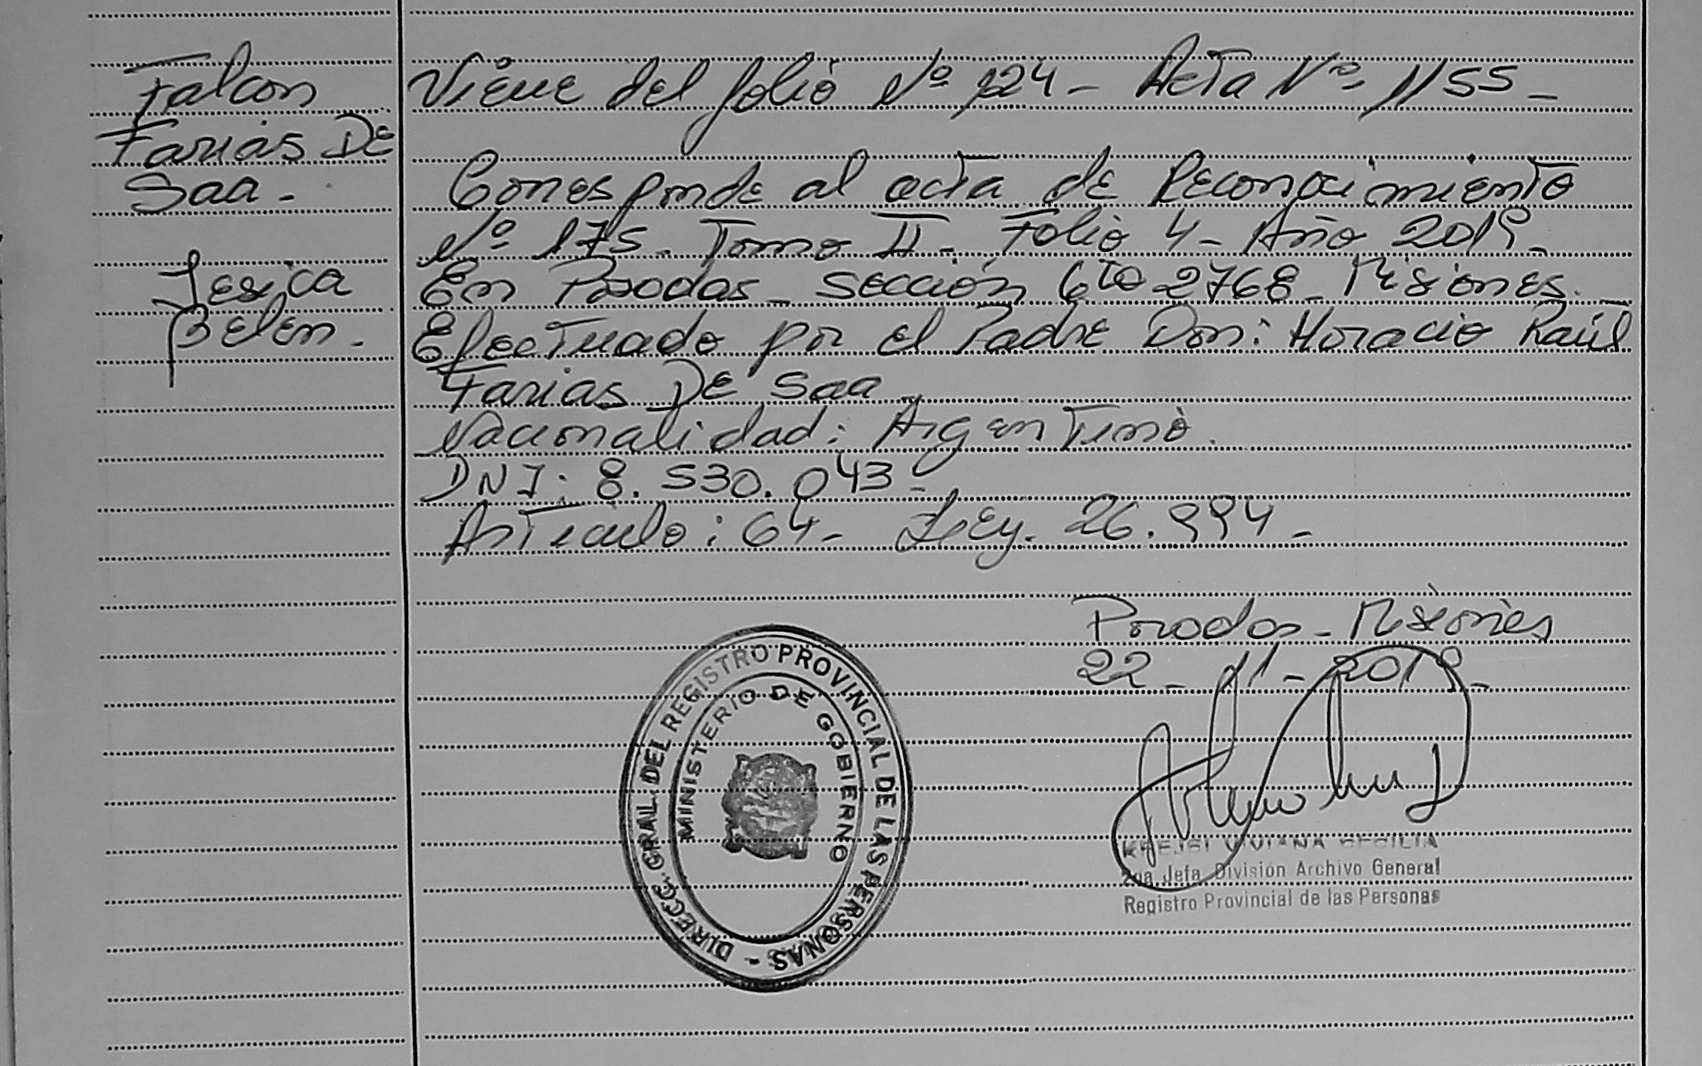 Falcon
Farias De
Saa -
Jesica
Belen -
Viene del folio Nº 124 - Acta Nº 1155 -
Corresponde al acta de Reconocimiento
Nº 175 - Tomo II - Folio 4 - Año 2019 -
En Posadas - sección 6ta 2768 - Misiones.
Efectuado por el Padre Don: Horacio Raúl
Farias De Saa
Nacionalidad: Argentino.
DNI: 8.530.043 -
Articulo: 64 - Ley. 26.994 -
Posadas - Misiones
22 - 11 - 2019 -
DIRECC. GRAL. DEL REGISTRO PROVINCIAL DE LAS PERSONAS -
MINISTERIO DE GOBIERNO
VIVIANA CECILIA
Jefa División Archivo General
Registro Provincial de las Personas